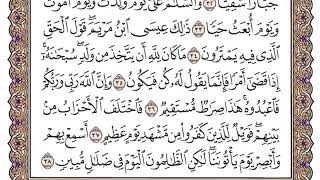 جَبَّارًا شَقِيًّا ٣٢ وَالسَّلَٰمُ عَلَىَّ يَوْمَ وُلِدتُّ وَيَوْمَ أَمُوتُ
وَيَوْمَ أُبْعَثُ حَيًّا ٣٣ ذَٰلِكَ عِيسَى ابْنُ مَرْيَمَ قَوْلَ الْحَقِّ
الَّذِى فِيهِ يَمْتَرُونَ ٣٤ مَا كَانَ لِلَّهِ أَن يَتَّخِذَ مِن وَلَدٍ سُبْحَٰنَهُۥٓ
إِذَا قَضَىٰٓ أَمْرًا فَإِنَّمَا يَقُولُ لَهُۥ كُن فَيَكُونُ ٣٥ وَإِنَّ اللَّهَ رَبِّى وَرَبُّكُمْ
فَاعْبُدُوهُ هَٰذَا صِرَٰطٌ مُّسْتَقِيمٌ ٣٦ فَاخْتَلَفَ الْأَحْزَابُ مِنۢ
بَيْنِهِمْ فَوَيْلٌ لِّلَّذِينَ كَفَرُوا۟ مِن مَّشْهَدِ يَوْمٍ عَظِيمٍ ٣٧ أَسْمِعْ بِهِمْ
وَأَبْصِرْ يَوْمَ يَأْتُونَنَا لَٰكِنِ الظَّٰلِمُونَ الْيَوْمَ فِى ضَلَٰلٍ مُّبِينٍ ٣٨